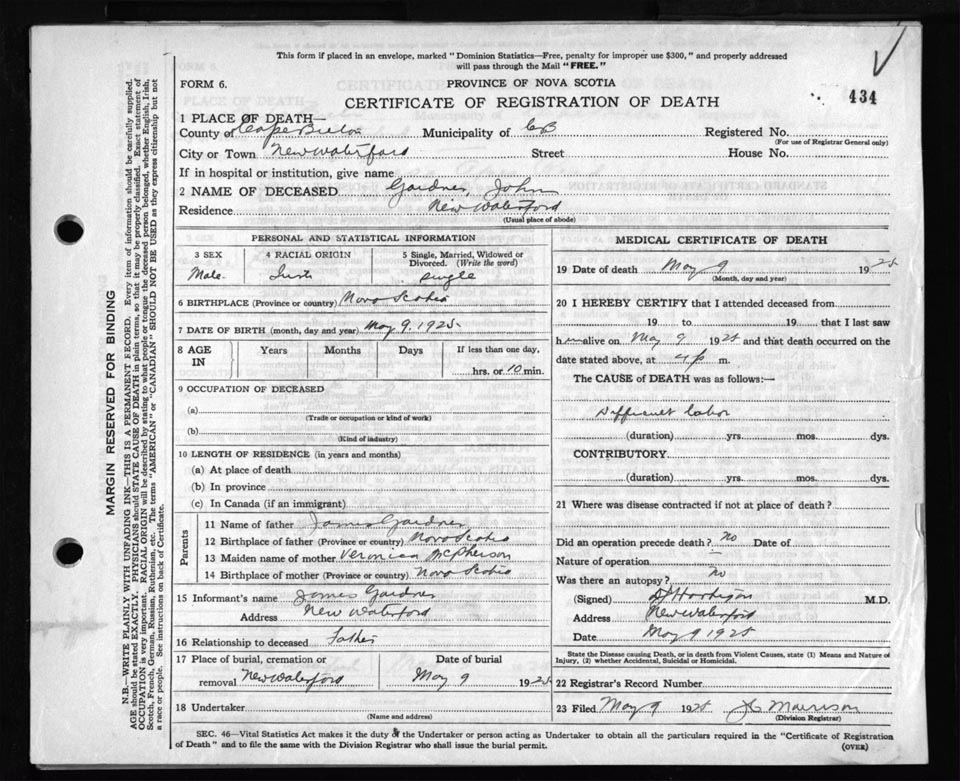 This form if placed in an envelope, marked "Dominion Statistics—Free, penalty for improper use $300," and properly addressed
will pass through the Mail "FREE."
FORM 6.
PROVINCE OF NOVA SCOTIA
CERTIFICATE OF REGISTRATION OF DEATH
434
1 PLACE OF DEATH—
County of Cape Breton Municipality of CB Registered No.
(For use of Registrar General only)
City or Town New Waterford Street House No.
If in hospital or institution, give name
2 NAME OF DECEASED Gardner, John
Residence New Waterford
(Usual place of abode)
PERSONAL AND STATISTICAL INFORMATION
3 SEX 4 RACIAL ORIGIN 5 Single, Married, Widowed or
Divorced. (Write the word)
Male Irish single
6 BIRTHPLACE (Province or country) Nova Scotia
7 DATE OF BIRTH (month, day and year) May 9, 1925
8 AGE IN Years Months Days If less than one day,
hrs. or 10 min.
9 OCCUPATION OF DECEASED
(a)
(Trade or occupation or kind of work)
(b)
(Kind of industry)
10 LENGTH OF RESIDENCE (in years and months)
(a) At place of death
(b) In province
(c) In Canada (if an immigrant)
Parents
11 Name of father James Gardner
12 Birthplace of father (Province or country) Nova Scotia
13 Maiden name of mother Veronica McPherson
14 Birthplace of mother (Province or country) Nova Scotia
15 Informant's name James Gardner
Address New Waterford
16 Relationship to deceased Father
17 Place of burial, cremation or Date of burial
removal New Waterford May 9 1925
18 Undertaker
(Name and address)
MEDICAL CERTIFICATE OF DEATH
19 Date of death May 9 1925
(Month, day and year)
20 I HEREBY CERTIFY that I attended deceased from
19 to 19 that I last saw
him alive on May 9 1925 and that death occurred on the
date stated above, at 4 p m.
The CAUSE of DEATH was as follows:—
Difficult labor
(duration) yrs. mos. dys.
CONTRIBUTORY
(duration) yrs. mos. dys.
21 Where was disease contracted if not at place of death?
Did an operation precede death? no Date of
Nature of operation
Was there an autopsy? no
(Signed) M.D.
Address New Waterford
Date May 9 1925
State the Disease causing Death, or in death from Violent Causes, state (1) Means and Nature of
Injury, (2) whether Accidental, Suicidal or Homicidal.
22 Registrar's Record Number
23 Filed May 9 1925 Morrison
(Division Registrar)
SEC. 46—Vital Statistics Act makes it the duty of the Undertaker or person acting as Undertaker to obtain all the particulars required in the "Certificate of Registration
of Death" and to file the same with the Division Registrar who shall issue the burial permit. (OVER)
MARGIN RESERVED FOR BINDING
N.B.—WRITE PLAINLY WITH UNFADING INK—THIS IS A PERMANENT RECORD. Every item of information should be carefully supplied.
AGE should be stated EXACTLY. PHYSICIANS should STATE CAUSE OF DEATH in plain terms, so that it may be properly classified. Exact statement of
OCCUPATION is very important. RACIAL ORIGIN will be described by stating to what people or tongue the deceased person belonged, whether English, Irish,
Scotch, French, German, Russian, Ruthenian, etc. The terms "AMERICAN" or "CANADIAN" SHOULD NOT BE USED as they express citizenship but not
a race or people. See instructions on back of Certificate.